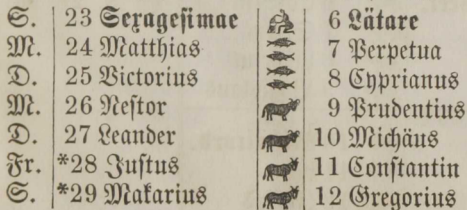 S. 23 Sexagesimae 6 Lätare
M. 24 Matthias 7 Perpetua
D. 25 Victorius 8 Cyprianus
M. 26 Nestor 9 Prudentius
D. 27 Leander 10 Michäus
Fr. *28 Justus 11 Constantin
S. *29 Makarius 12 Gregorius